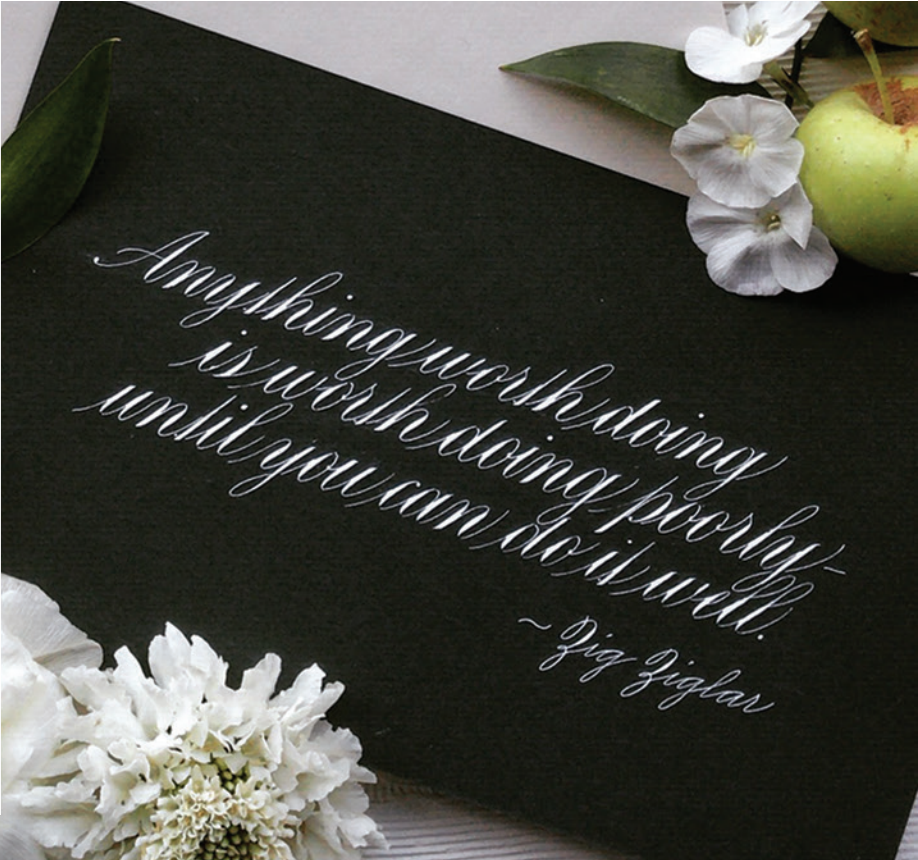 Anything worth doing
is worth doing poorly-
until you can do it well.
~ Zig Ziglar